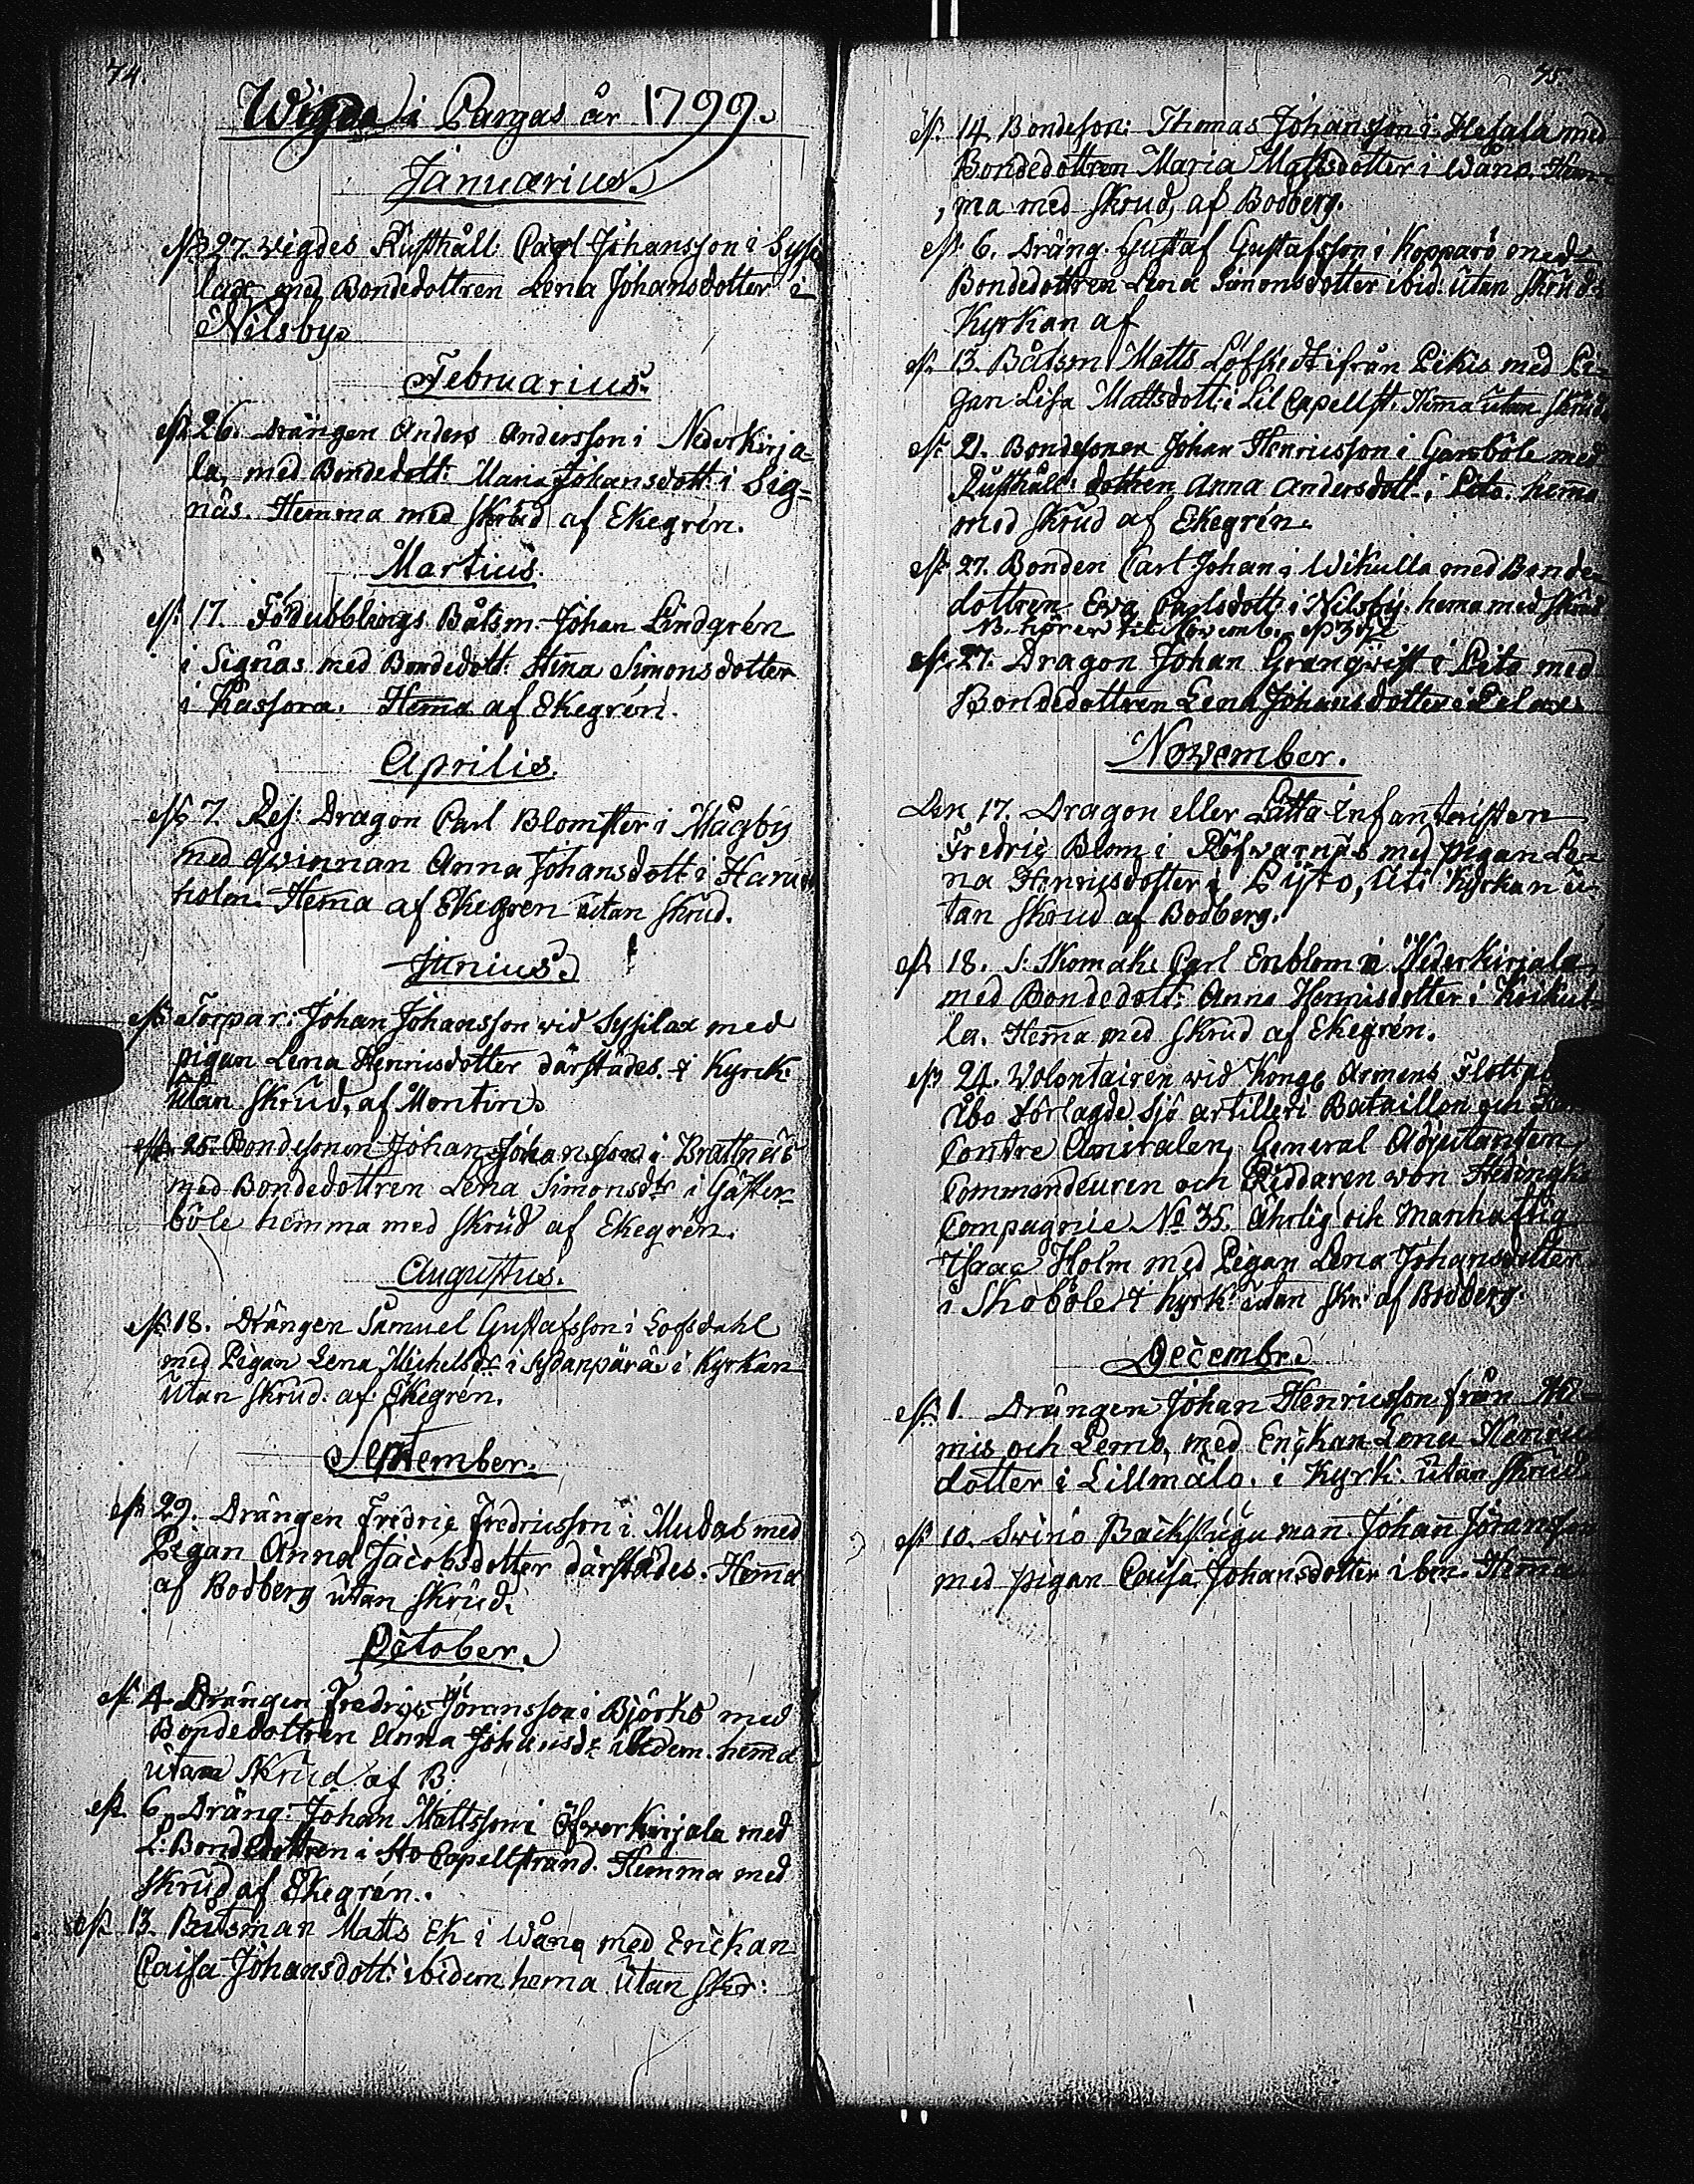 74.
Wigde i Pargas år 1799.
Januarius.
d. 27. wigdes Rusthåll: Carl Johansson i Sysi
lax med Bondedottren Lena Johansdotter i
Nilsby.
Februarius.
d. 26. Drängen Anders Andersson i Nederkirja=
la, med Bondedott: Maria Johansdott: i Sig=
näs. Hemma med skrud af Ekegrén.
Martius.
d. 17. Fördubblings Båtsm. Johan Lindgrén
i Signäs med Bondedott: Stina Simonsdotter
i Kassora. Hema af Ekegrén.
Aprilis.
d. 7. Res: Dragon Carl Blomster i Mågby
med qwinnan Anna Johansdott: i Harun
holm. Hema af Ekegren utan skrud.
Junius.
d. Torpar: Johan Johansson wid Sysilax med
pigan Lena Henricsdotter därstädes. i Kyrk:
utan skrud, af Montin.
d. 25. Bondesonen Johan Johansson i Brattnäs
med Bondedottren Lena Simonsdr i Gäster=
böle hemma med skrud af Ekegrén.
Augustus.
d. 18. Drängen Samuel Gustafsson i Lofsdahl
med Pigan Lena Michelsdr i Sydänpärä i Kyrkan
utan skrud. af Ekegrén.
September.
d. 29. Drängen Fridric Fredricsson i Mudas med
Pigan Anna Jacobsdotter därstädes. Hema
af Bodberg utan skrud.
October.
d. 4. Drängen Fredric Jöransson i Björkö med
Bondedottren Anna Johansdr ibidem. hema
utan skrud af B.
d. 6. Dräng: Johan Mattsson i Öfverkirjala med
L: Bondedottren i Sto Capellstrand. Hemma med
skrud af Ekegrén.
d. 13. Båtsman Matts Ek i Wånå med Enckan
Caisa Johansdott: ibidem hema utan skr:
75.
d. 14. Bondeson: Thomas Johansson i Hesala med
Bondedottren Maria Mattsdotter i Wånå. Hem=
ma med skrud, af Bodberg.
d. 6. Dräng: Gustaf Gustafsson i Kopparö med
Bondedottren Lena Simonsdotter ibid: utan skrud i
Kyrkan af
d. 13. Båtsm: Matts Löfstedt ifrån Pikis med Pi=
gan Lisa Mattsdott: i Lil Capellst. Hema utan skrud.
d. 21. Bondesonen Johan Henricsson i Garsböle med
Rusthåll: dottren Anna Andersdott: i Pito. hema
med skrud af Ekegrén.
d. 27. Bonden Carl Johan: i Wikulla med Bonde=
dottren Eva Carlsdott: i Nilsby. hema med skrud
NB. hörer till Novemb.
d. 27. Dragon Johan Granqwist i Pito med
Bondedottren Lena Johansdotter i Pelax.
November.
Den 17. Dragon eller Lätta Infanteristen
Fredric Blom i Röfvarnäs med pigan Le=
na Henricsdotter i Pyto, uti kyrkan u=
tan skrud af Bodberg.
d. 18. S: Skomak: Carl Enblom i Nederkirjala,
med Bondedott: Anna Henricsdotter i Koikul=
la. Hema med skrud af Ekegrén.
d. 24. Volontairen wid Kongl Armens Flott på
Åbo förlagde Sjö artilleri Bataillon och
Contre Amiralen, General Adjutanten,
Commendeuren och Riddaren von
Compagnie No 35. Ährlig och Manhaftig
Isaac Holm med Pigan Lena Johansdotter
i Skoböle i kyrk: utan skr: af Bodberg.
Decembr.
d. 1. Drängen Johan Henricsson från
mis och Lemo, med Enckan Lena Henrics
dotter i Lillmälo. i Kyrk: utan skrud.
d. 10. Svinö Backstugu man Johan Jöransson
med pigan Caisa Johansdotter ibm. Hema